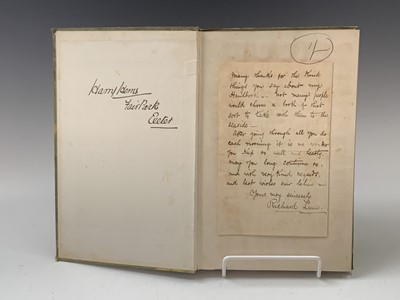 Harry Hems
Fair Park
Exeter
1/-
Many thanks for the kind
things you say about my
Handbook — Not many people
would choose a book of that
sort to take with them to the
seaside —
After going through all you do
each morning it is no wonder
you keep so well and hearty
may you long continue so,
and with very kind regards,
and best wishes
Yours very sincerely
Richard